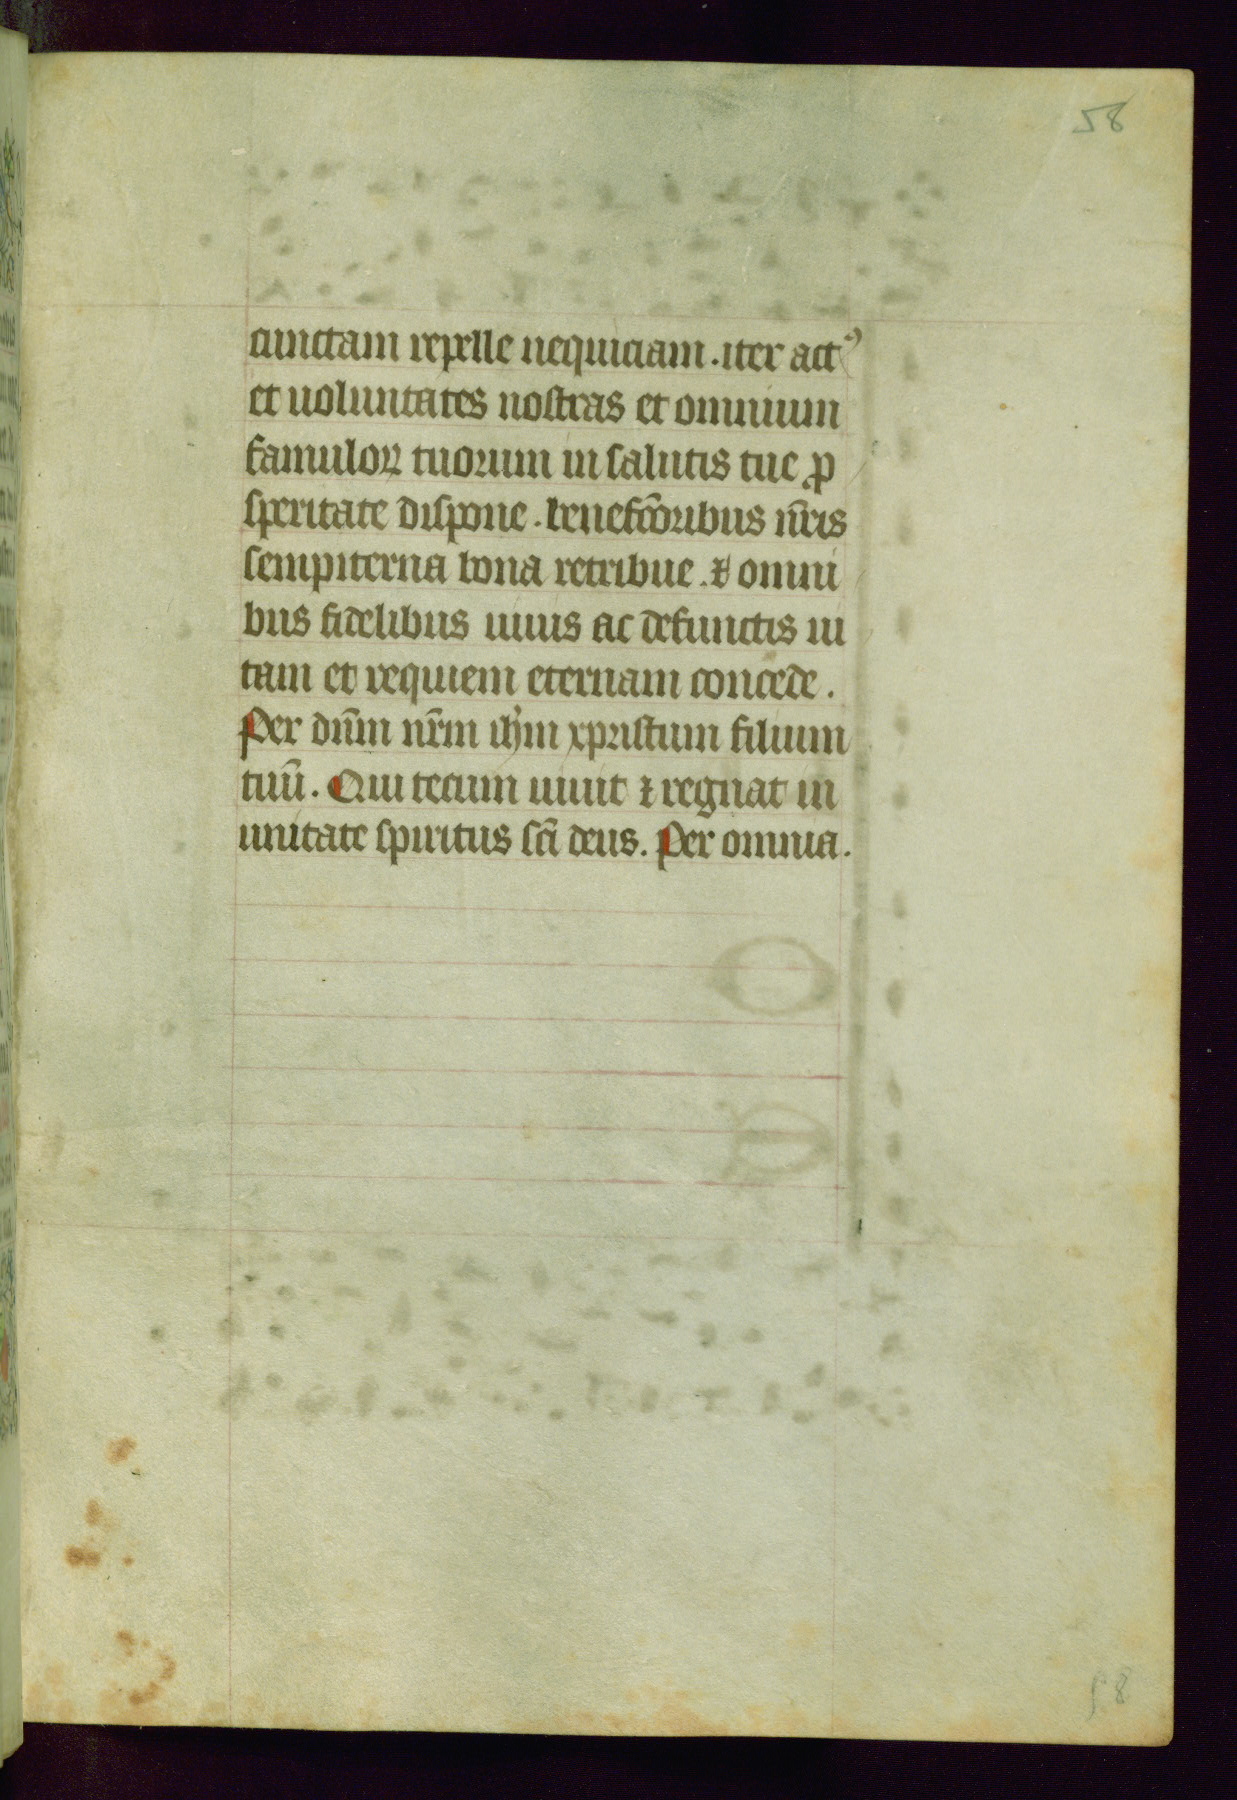 58
cunctam repelle nequiciam. iter actꝰ
et uoluntates nostras et omnium
famuloꝝ tuorum in salutis tue ꝓ
speritate dispone. benefc̄oribus nr̄is
sempiterna bona retribue. ⁊ omni
bus fidelibus uiuis ac defunctis ui
tam et requiem eternam concede.
Per dn̄m nr̄m ih̄m xpristum filium
tuū. Qui tecum uiuit ⁊ regnat in
unitate spiritus sc̄i deus. Per omnia.
58